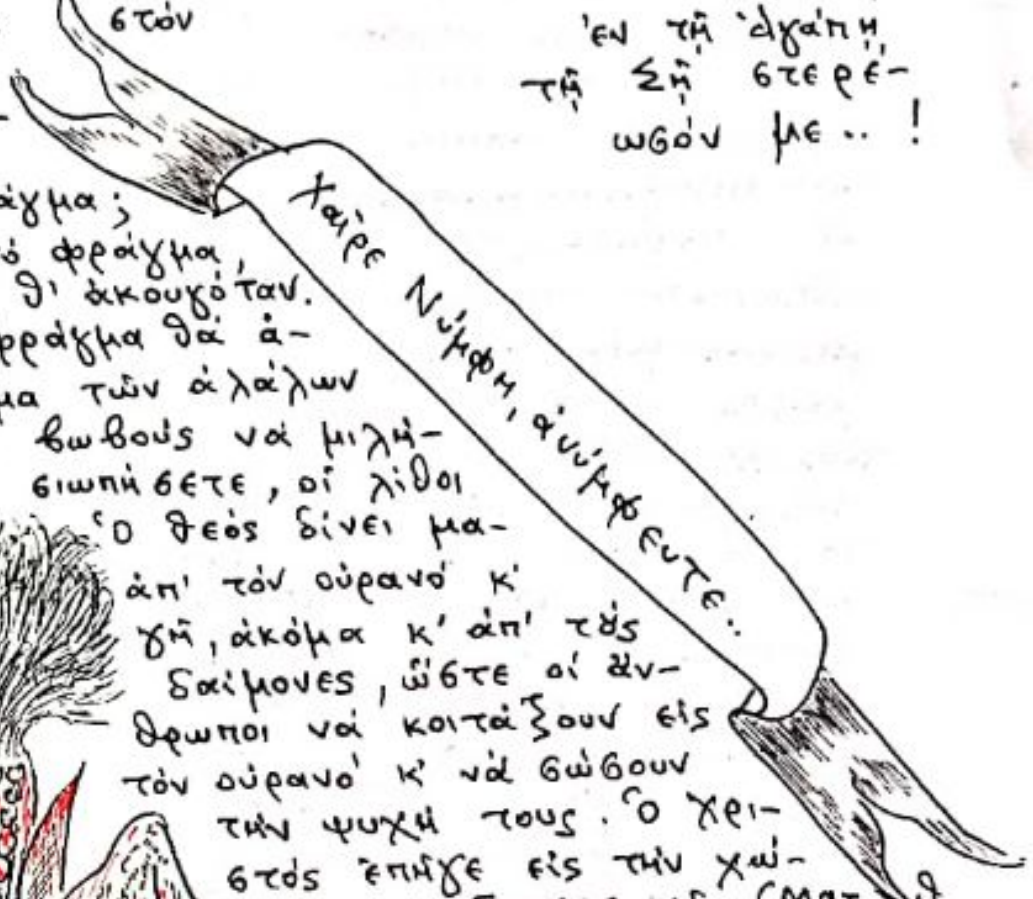 στόν
ἐν τῇ ἀγάπῃ
τῇ Σῇ στερέ-
ωσόν με.. !
Χαῖρε Νύμφη, ἀνύμφευτε..
φράγμα,
θ' ἀκουγόταν.
θά ἀ-
τῶν ἀλάλων
βωβούς νά μιλή-
σιωπήσετε, οἱ λίθοι
Ὁ θεός δίνει μα-
ἀπ' τόν οὐρανό κ'
γῆ, ἀκόμα κ' ἀπ' τούς
δαίμονες, ὥστε οἱ ἄν-
θρωποι νά κοιτάξουν εἰς
τόν οὐρανό κ' νά σώσουν
τήν ψυχή τους. Ὁ Χρι-
στός ἐπῆγε εἰς τήν χώ-